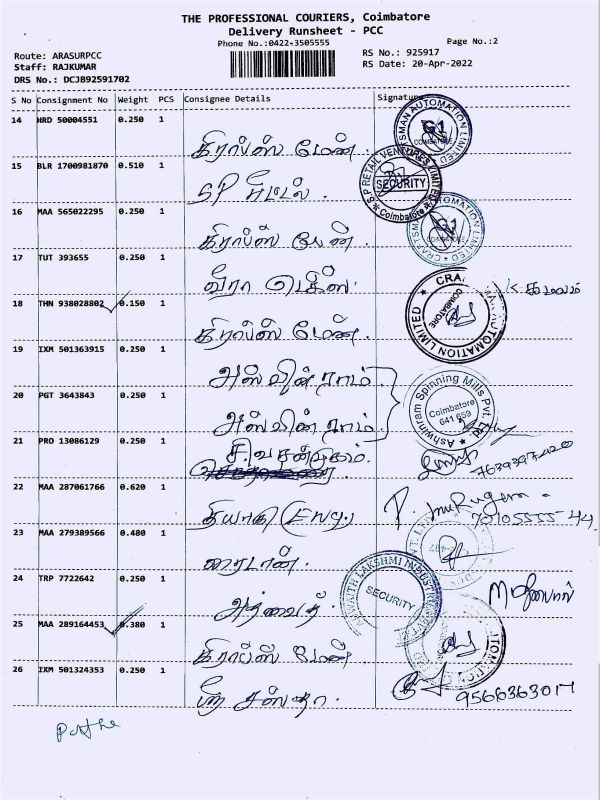 THE PROFESSIONAL COURIERS, Coimbatore
Delivery Runsheet - PCC
Phone No.:0422-3505555
Page No.:2
Route: ARASURPCC
RS No.: 925917
Staff: RAJKUMAR
RS Date: 20-Apr-2022
DRS No.: DCJB92591702
S No Consignment No Weight PCS Consignee Details Signature
14 HRD 50004551 0.250 1
கிராப்ஸ் மேன்.
CRAFTSMAN AUTOMATION LIMITED G1 COIMBATORE
15 BLR 1700981870 0.510 1
SP ரீட்டல்
S.P RETAIL VENTURES LIMITED SECURITY Coimbatore
16 MAA 565022295 0.250 1
கிராப்ஸ் மேன்.
CRAFTSMAN AUTOMATION LIMITED G1 COIMBATORE
17 TUT 393655 0.250 1
வீரா டெக்ஸ்.
கமலம்
18 THN 938028802 0.150 1
கிராப்ஸ் மேன்.
CRA AUTOMATION LIMITED COIMBATORE
19 IXM 501363915 0.250 1
அஸ்வின் ராம்.
20 PGT 3643843 0.250 1
அஸ்வின் ராம்.
Ashwinram Spinning Mills Pvt. Ltd Coimbatore 641 659
21 PRO 13086129 0.250 1
சிவசண்முகம்.
7639397420
22 MAA 287061766 0.620 1
தியாகு (Eng).
P. Murugan
70105555-44
23 MAA 279389566 0.480 1
24 TRP 7722642 0.250 1
அத்வைத்.
LAKSHMI INDUSTR SECURITY
25 MAA 289164453 0.380 1
கிராப்ஸ் மேன்
26 IXM 501324353 0.250 1
ஸ்ரீ சஸ்தா.
9566363017